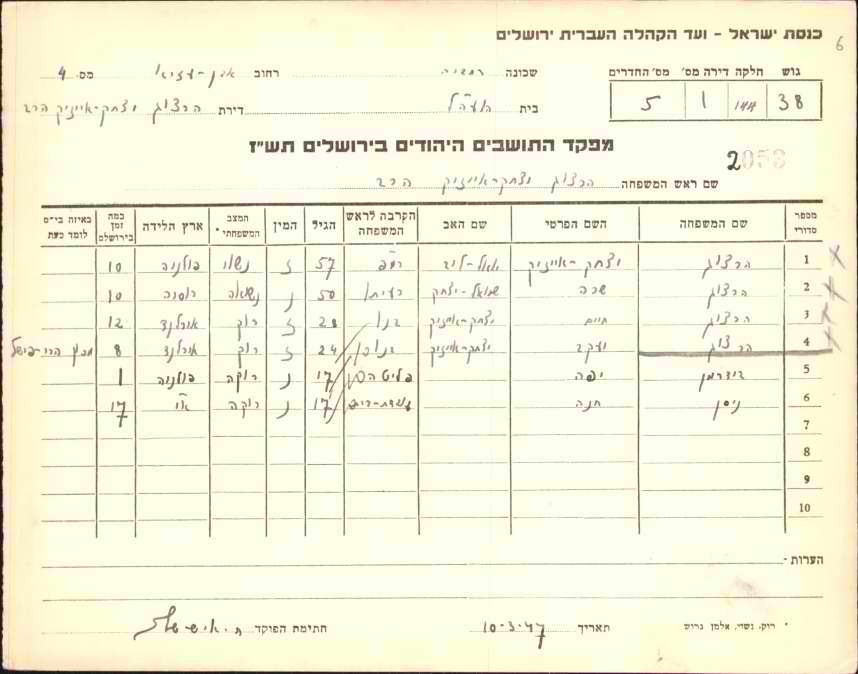 כנסת ישראל - ועד הקהלה העברית ירושלים
6
גוש חלקה דירה מס' מס' החדרים
38 1 5
שכונה רחביה רחוב אבן-עזרא מס. 4
בית דירת הרצוג יצחק-אייזיק הרב
מפקד התושבים היהודים בירושלים תש"ז
2053
שם ראש המשפחה הרצוג יצחק-אייזיק הרב
מספר סדורי שם המשפחה השם הפרטי שם האב הקרבה לראש המשפחה הגיל המין המצב המשפחתי * ארץ הלידה כמה זמן בירושלים באיזה בי"ס לומד כעת
1 הרצוג יצחק-אייזיק יואל-ליב 57 ז נשוי פולניה 10
2 הרצוג שרה שמואל-יצחק רעיתו 50 נ נשואה רוסיה 10
3 הרצוג חיים יצחק-אייזיק בנו 28 ז רוק אירלנד 12
4 הרצוג יעקב יצחק-אייזיק 24 ז רוק אירלנד 8
5 בידרמן יפה 17 נ רוקה פולניה 1
6 ניסן חנה 17 נ רוקה א"י 17
7
8
9
10
הערות -
* רוק, נשוי, אלמן גרוש תאריך 10-3-47 חתימת הפוקד